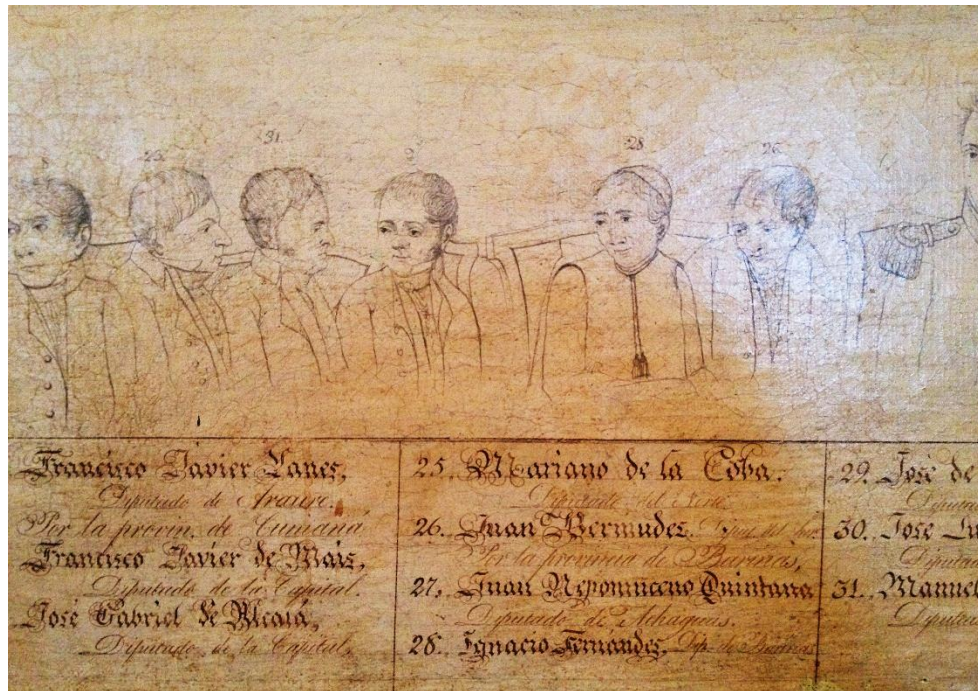 31.
28
26.
Francisco Javier Yanes,
Diputado de Araure.
Por la provin. de Cumaná
Francisco Javier de Mais,
Diputado de la Capital.
José Gabriel de Alcalá,
Diputado de la Capital.
25. Mariano de la Coba.
Diputado del Norte.
26. Juan Bermudes.
Por la provincia de Barinas,
27, Juan Nepomuceno Quintana
Diputado de Achaguas.
28. Ignacio Fernandes, Dip. de Barinas
29. José de
Diputa
30. José Lu
Diputad
31. Manuel
Diputa